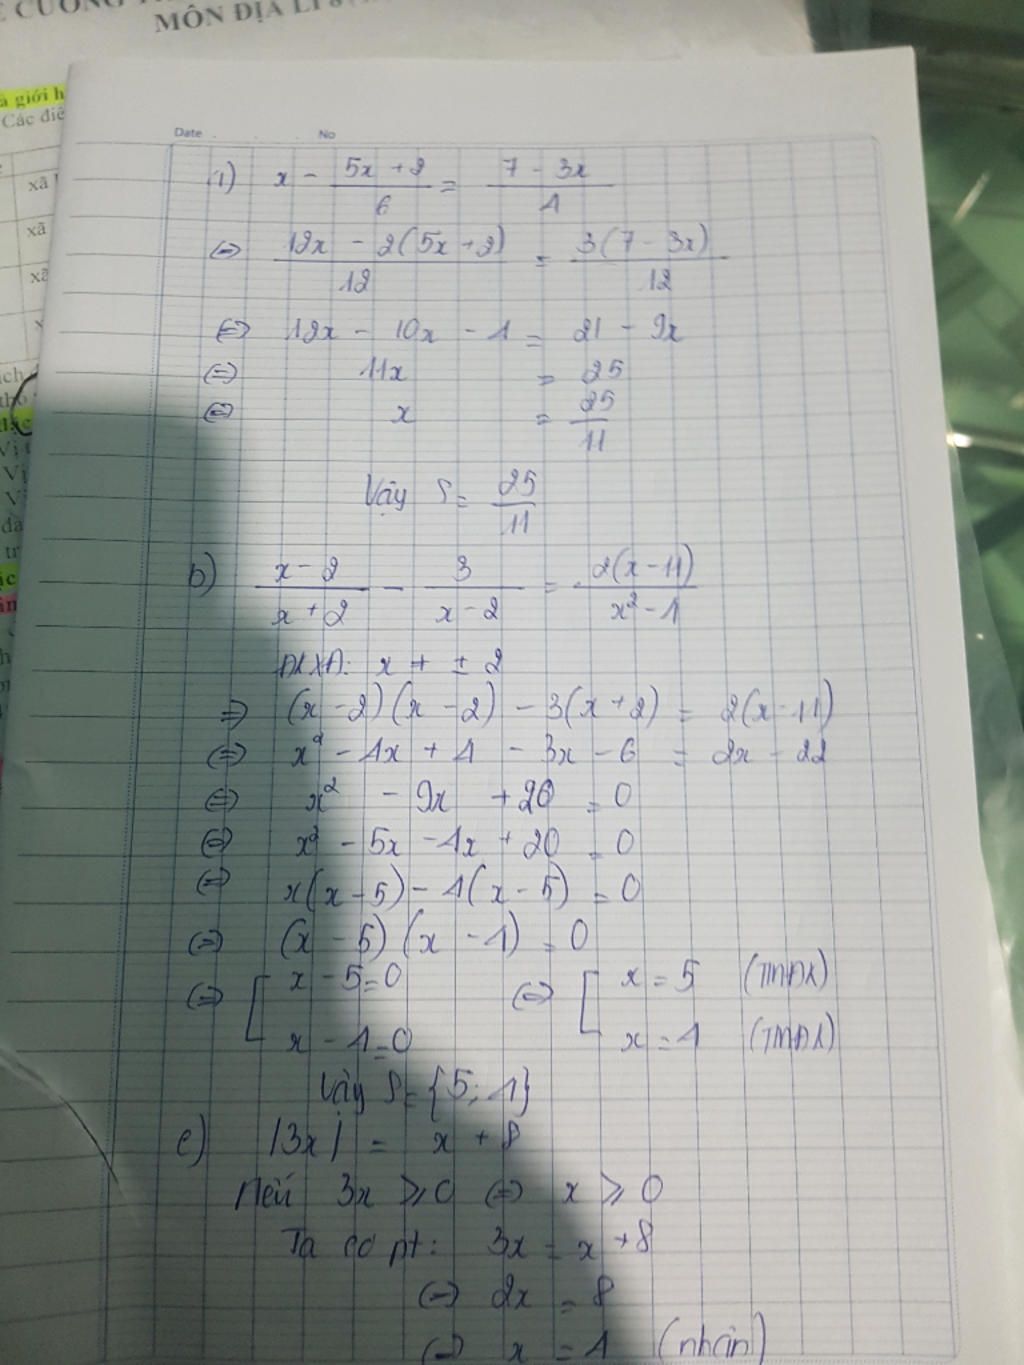 MÔN ĐỊA LÍ 8
à giới h
Các điề
xã
xã
xã
Date No
1) x - \frac{5x + 2}{6} = \frac{7 - 3x}{4}
⇔ \frac{12x - 2(5x + 2)}{12} = \frac{3(7 - 3x)}{12}
⇔ 12x - 10x - 4 = 21 - 9x
⇔ 11x = 25
⇔ x = \frac{25}{11}
Vậy S = \frac{25}{11}
b) \frac{x - 2}{x + 2} - \frac{3}{x - 2} = \frac{2(x - 11)}{x² - 4}
ĐKXĐ: x ≠ ± 2
⇒ (x - 2)(x - 2) - 3(x + 2) = 2(x - 11)
⇔ x² - 4x + 4 - 3x - 6 = 2x - 22
⇔ x² - 9x + 20 = 0
⇔ x² - 5x - 4x + 20 = 0
⇔ x(x - 5) - 4(x - 5) = 0
⇔ (x - 5)(x - 4) = 0
⇔ [ x - 5 = 0 ⇔ [ x = 5 (TMĐK)
x - 4 = 0 x = 4 (TMĐK)
Vậy S = {5; 4}
c) |3x| = x + 8
Nếu 3x ≥ 0 ⇔ x ≥ 0
Ta có pt: 3x = x + 8
⇔ 2x = 8
⇔ x = 4 (nhận)